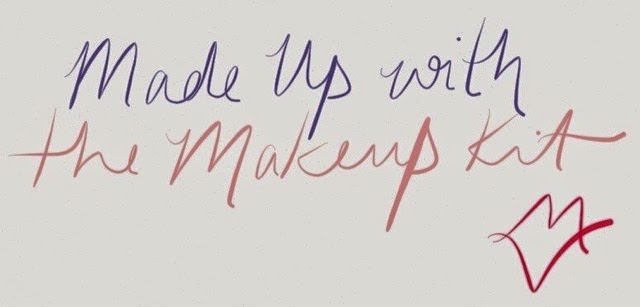 Made Up with
the Makeup Kit